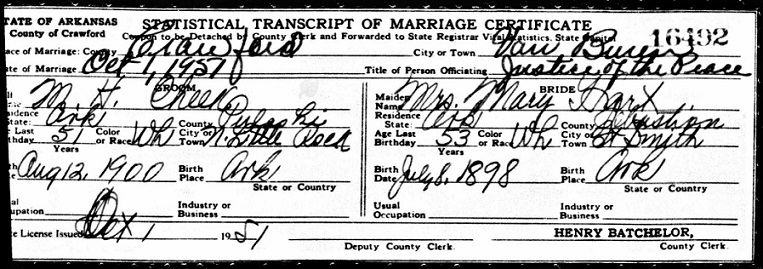 TATE OF ARKANSAS STATISTICAL TRANSCRIPT OF MARRIAGE CERTIFICATE
County of Crawford Coupon to be Detached by County Clerk and Forwarded to State Registrar Vital Statistics, State Capitol 16492
ace of Marriage: County Crawford City or Town Van Buren
te of Marriage Oct 1, 1951 Title of Person Officiating Justice of the Peace
GROOM BRIDE
M. H. Cheek Maiden Name Mrs. Mary
sidence State: Ark County Pulaski Residence State: Ark County Sebastian
e Last thday 51 Years Color or Race Wh City or Town N. Little Rock Age Last Birthday 53 Years Color or Race Wh City or Town Ft Smith
th Aug 12, 1900 Birth Place Ark Birth Date July 8, 1898 Birth Place Ark
State or Country State or Country
al upation Industry or Business Usual Occupation Industry or Business
e License Issued Oct 1 1951 HENRY BATCHELOR,
Deputy County Clerk. County Clerk.